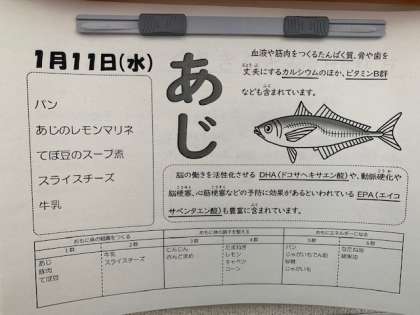 1月11日(水)
パン
あじのレモンマリネ
てぼ豆のスープ煮
スライスチーズ
牛乳
あじ
血液や筋肉をつくるたんぱく質、骨や歯を
丈夫にするカルシウムのほか、ビタミンB群
なども含まれています。
脳の働きを活性化させる DHA(ドコサヘキサエン酸)や、動脈硬化や
脳梗塞、心筋梗塞などの予防に効果があるといわれている EPA(エイコ
サペンタエン酸)も豊富に含まれています。
おもに体の組織をつくる おもに体の調子を整える おもにエネルギーになる
1群 2群 3群 4群 5群 6群
あじ
豚肉
てぼ豆
牛乳
スライスチーズ
にんじん
さんどまめ
たまねぎ
レモン
キャベツ
コーン
パン
じゃがいもでん粉
砂糖
じゃがいも
なたね油